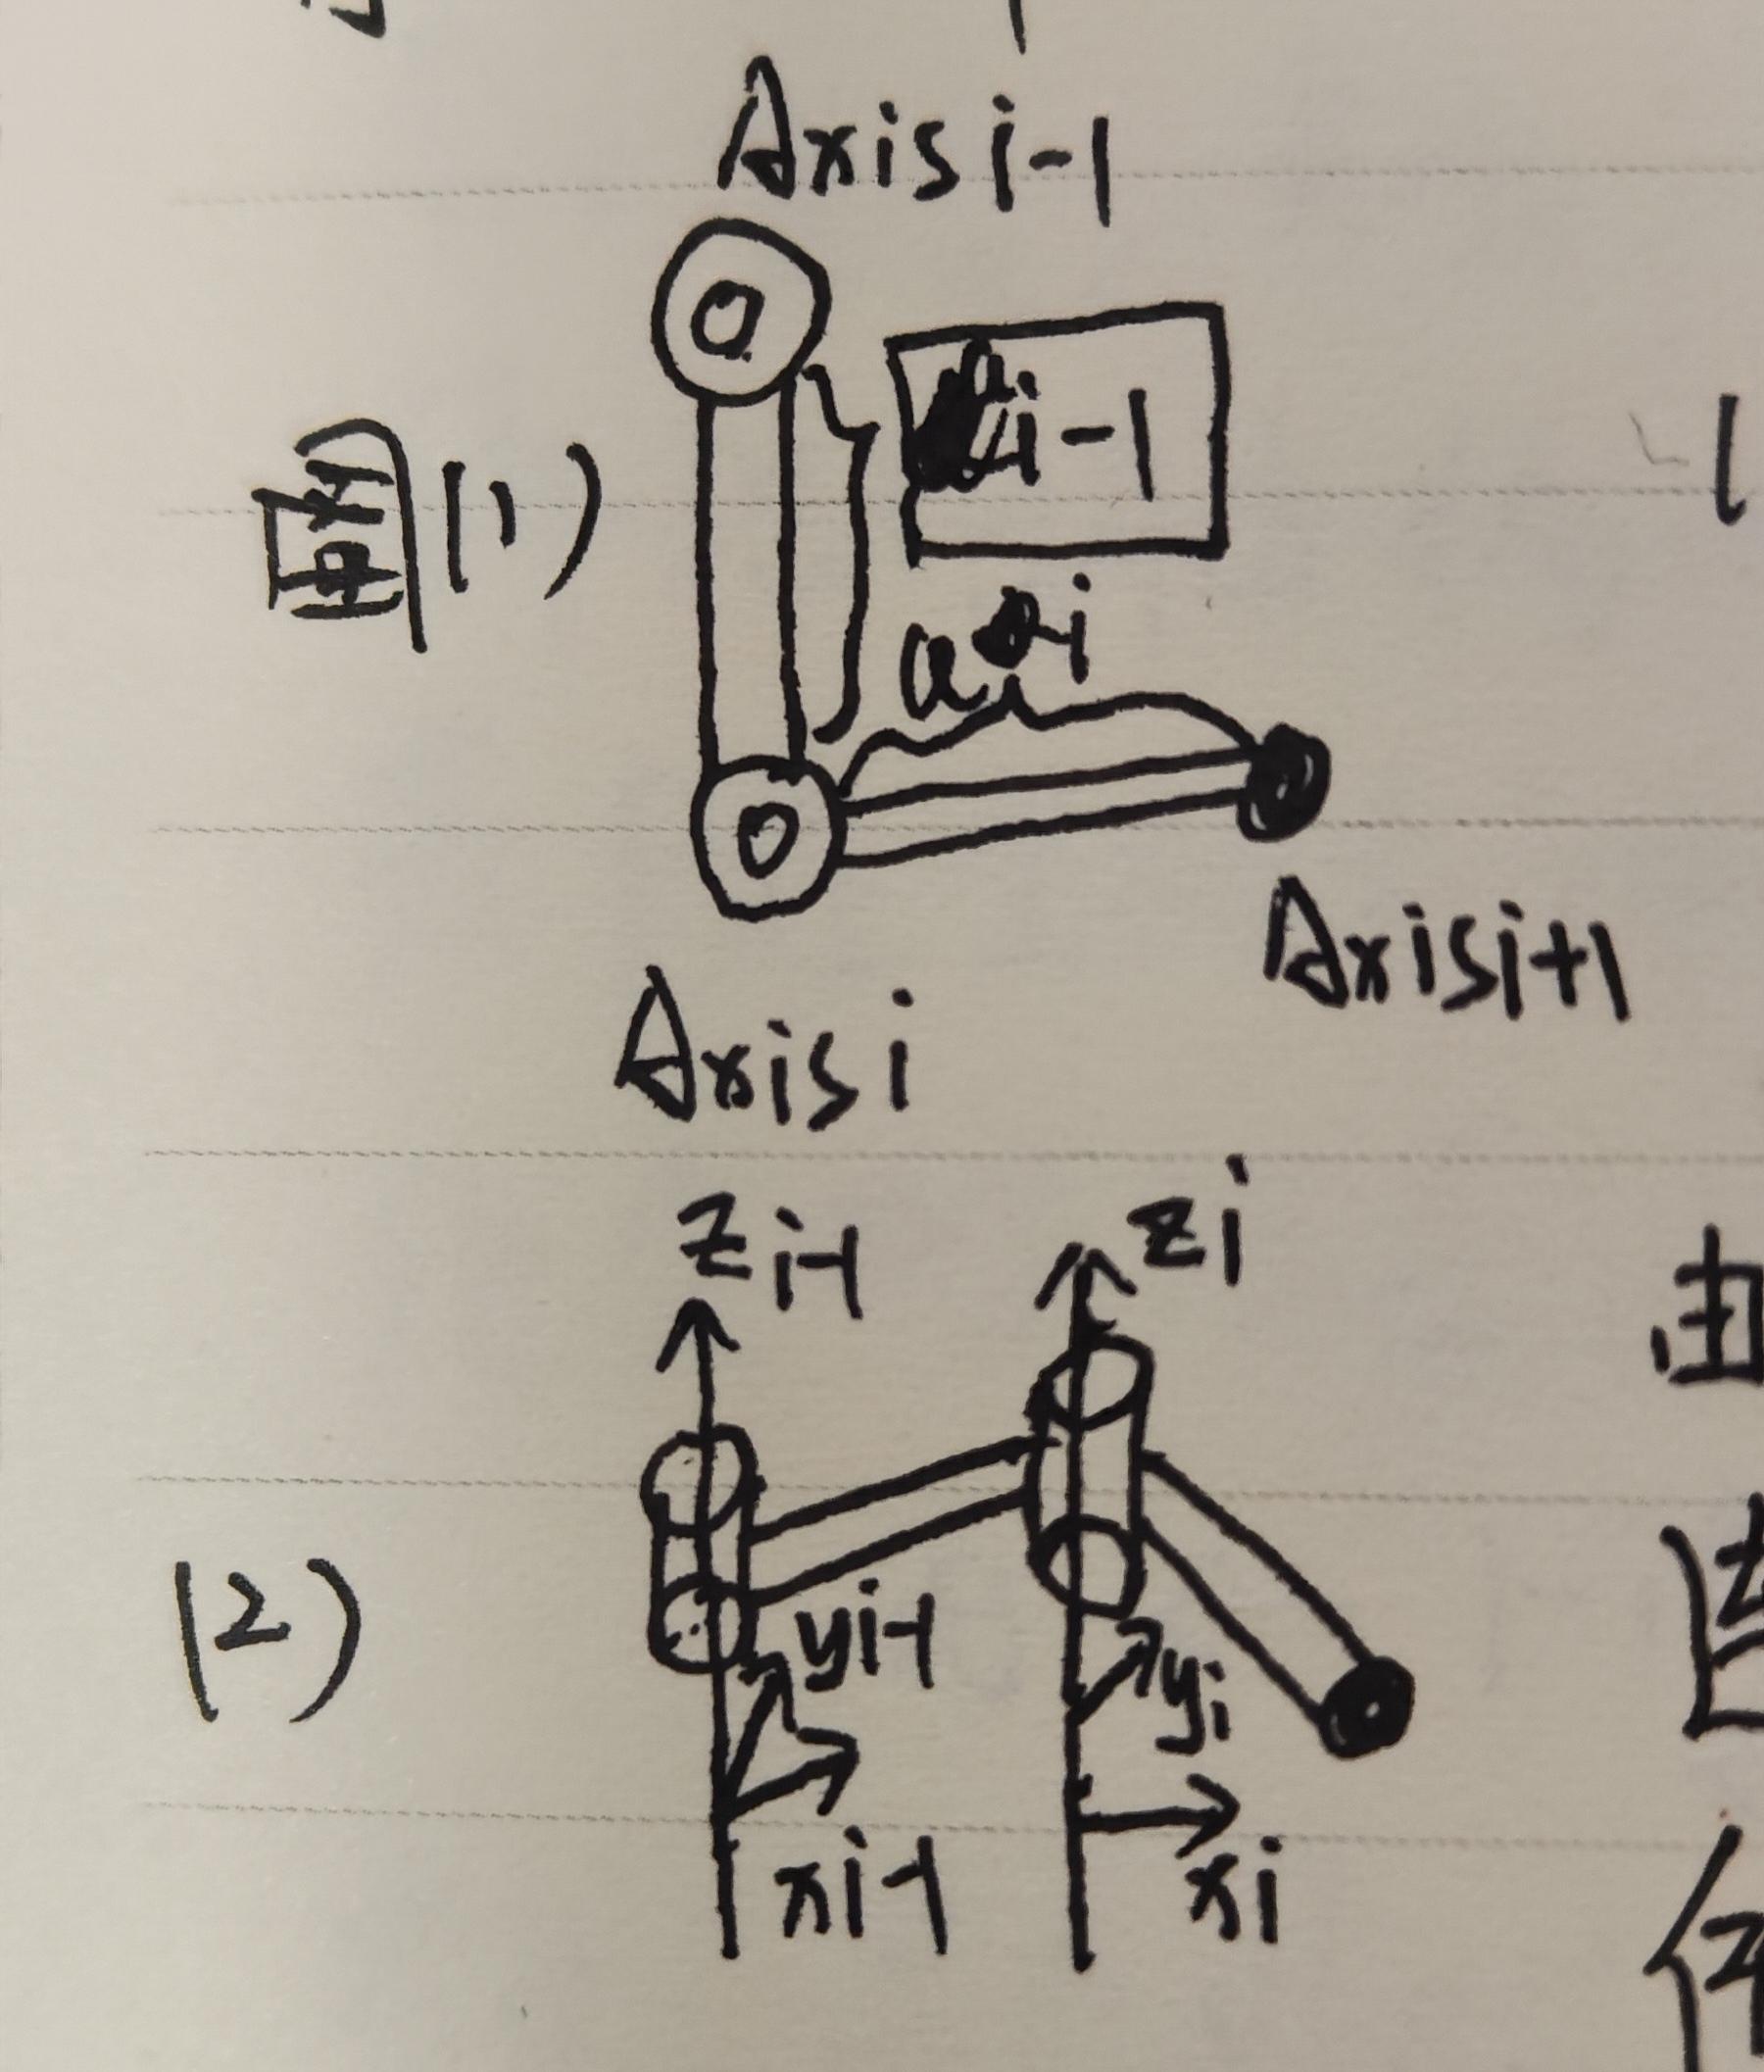 Axis i-1
圖(1)
i-1
a i
Axis i+1
Axis i
Zi-1
Zi
(2)
yi-1
yi
xi-1
xi
由